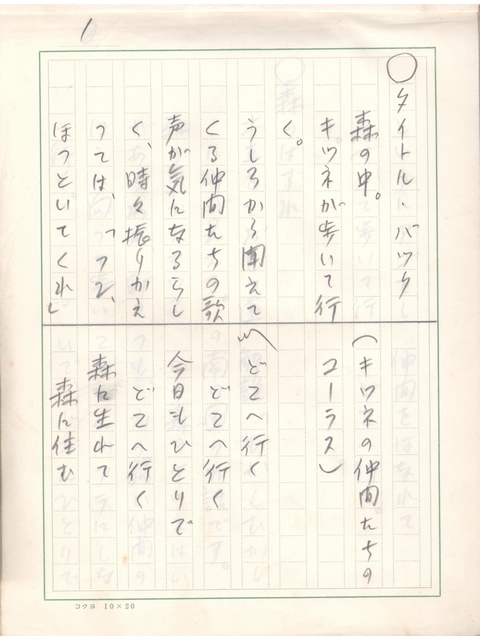 1
○タイトル・バック
森の中。
キツネが歩いて行
く。
うしろから聞えて
くる仲間たちの歌
声が気になるらし
く、時々振りかえ
っては、「フン、
ほっといてくれ」
（キツネの仲間たちの
コーラス）
〽どこへ行く
どこへ行く
今日もひとりで
どこへ行く
森に生れて
森に住む
コクヨ 10×20